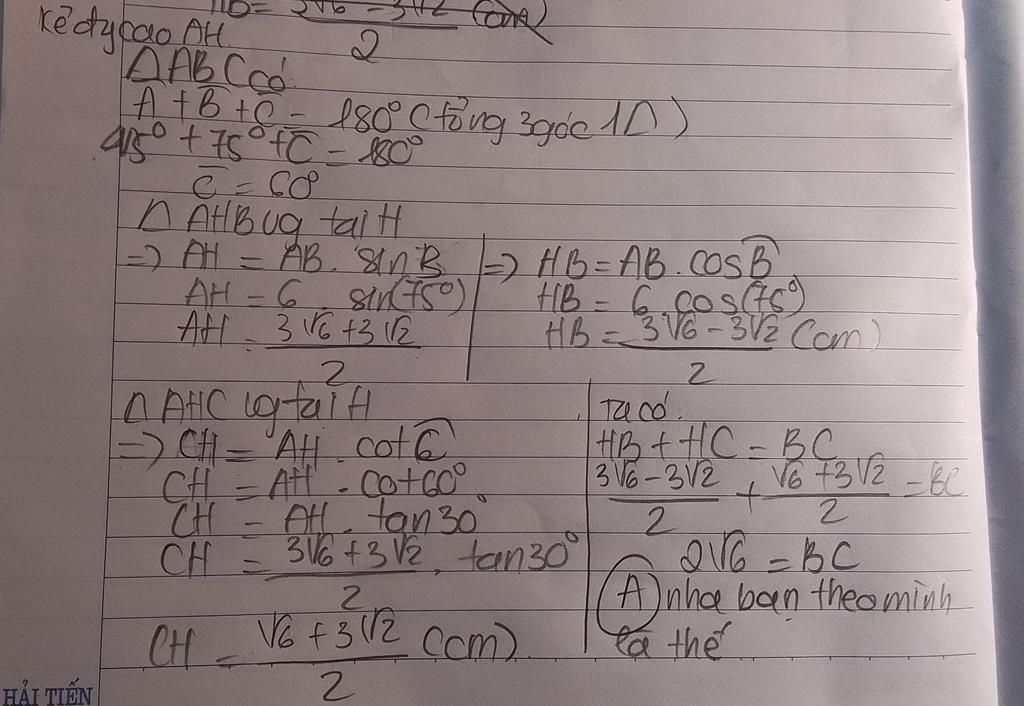 HB = 3√6 - 3√2 / 2 (cm)
kẻ đg cao AH.
△ABC có
A + B + C = 180° (tổng 3 góc 1△)
45° + 75° + C = 180°
C = 60°
△AHB vg tại H
=> AH = AB . sin B
AH = 6 . sin(75°)
AH = 3√6 + 3√2 / 2
=> HB = AB . cos B
HB = 6 . cos(75°)
HB = 3√6 - 3√2 / 2 (cm)
△AHC vg tại H
=> CH = AH . cot C
CH = AH . cot 60°
CH = AH . tan 30°
CH = 3√6 + 3√2 / 2 . tan 30°
CH = √6 + 3√2 / 2 (cm)
Ta có.
HB + HC = BC
3√6 - 3√2 / 2 + √6 + 3√2 / 2 = BC
2√6 = BC
A nha bạn theo mình
là thế
HẢI TIẾN